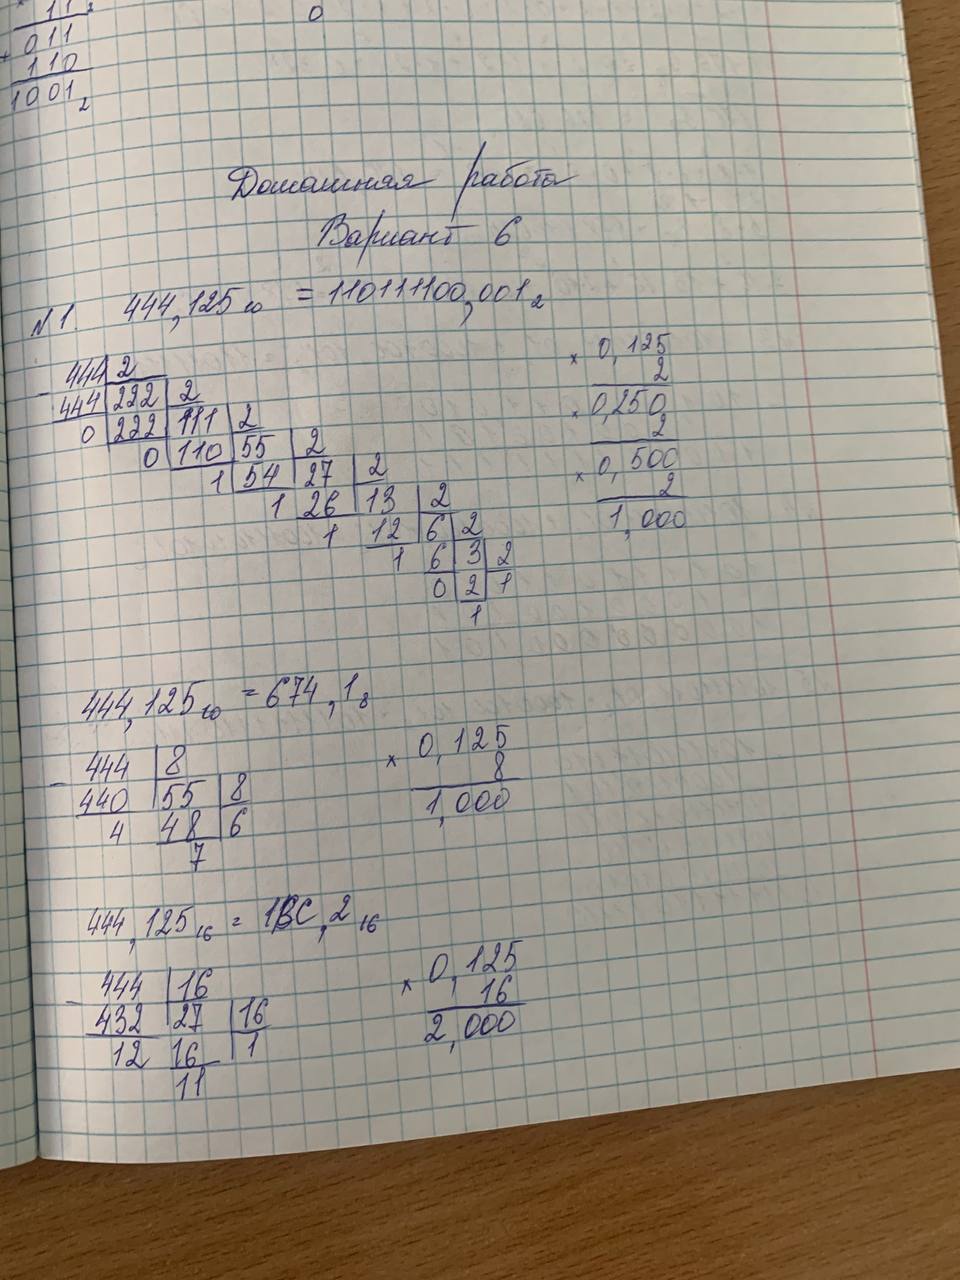 11₂
0
011
+
110
1001₂
Домашняя работа
Вариант 6
№1. 444,125₁₀ = 110111100,001₂
444 2
- 444 222 2
0 222 111 2
0 110 55 2
1 54 27 2
1 26 13 2
1 12 6 2
1 6 3 2
0 2 1
1
× 0,125
2
× 0,250
2
× 0,500
2
1,000
444,125₁₀ = 674,1₈
444 8
- 440 55 8
4 48 6
7
× 0,125
8
1,000
444,125₁₆ = 1BC,2₁₆
444 16
- 432 27 16
12 16 1
11
× 0,125
16
2,000